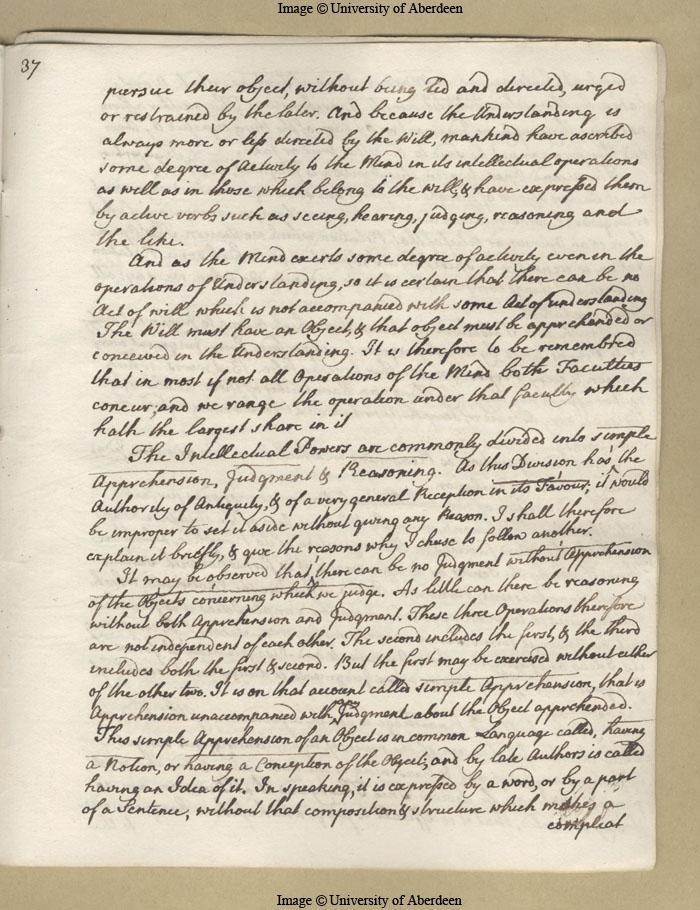 Image © University of Aberdeen
37
pursue their object, without being led and directed, urged
or restrained by the later. And because the Understanding is
always more or less directed by the Will, mankind have ascribed
some degree of Activity to the Mind in its intellectual operations
as well as in those which belong to the will, & have expressed them
by active verbs such as seeing, hearing, judging, reasoning and
the like.
And as the Mind exerts some degree of activity even in the
operations of Understanding, so it is certain that there can be no
Act of will which is not accompanied with some Act of understanding
The Will must have an Object, & that object must be apprehended or
conceived in the Understanding. It is therefore to be remembred
that in most if not all Operations of the Mind both Faculties
concur; and we range the operation under that faculty which
hath the largest share in it
The Intellectual Powers are commonly divided into simple
Apprehension, Judgment & Reasoning. As this Division has the
Authority of Antiquity, & of a very general Reception in its Favour, it would
be improper to set it aside without giving any Reason. I shall therefore
explain it briefly, & give the reasons why I chuse to follow another.
It may be observed that, there can be no Judgment without Apprehension
of the Objects concerning which we judge. As little can there be reasoning
without both Apprehension and Judgment. These three Operations therefore
are not independent of each other. The second includes the first, & the third
includes both the first & second. But the first may be exercised without either
of the other two. It is on that account called simple Apprehension, that is
Apprehension unaccompanied with any Judgment about the Object apprehended.
This simple Apprehension of an Object is in common Language called, having
a Notion, or having a Conception of the Object; and by late Authors is called
having an Idea of it. In speaking, it is expressed by a word, or by a part
of a Sentence, without that composition & structure which makes a
compleat
Image © University of Aberdeen